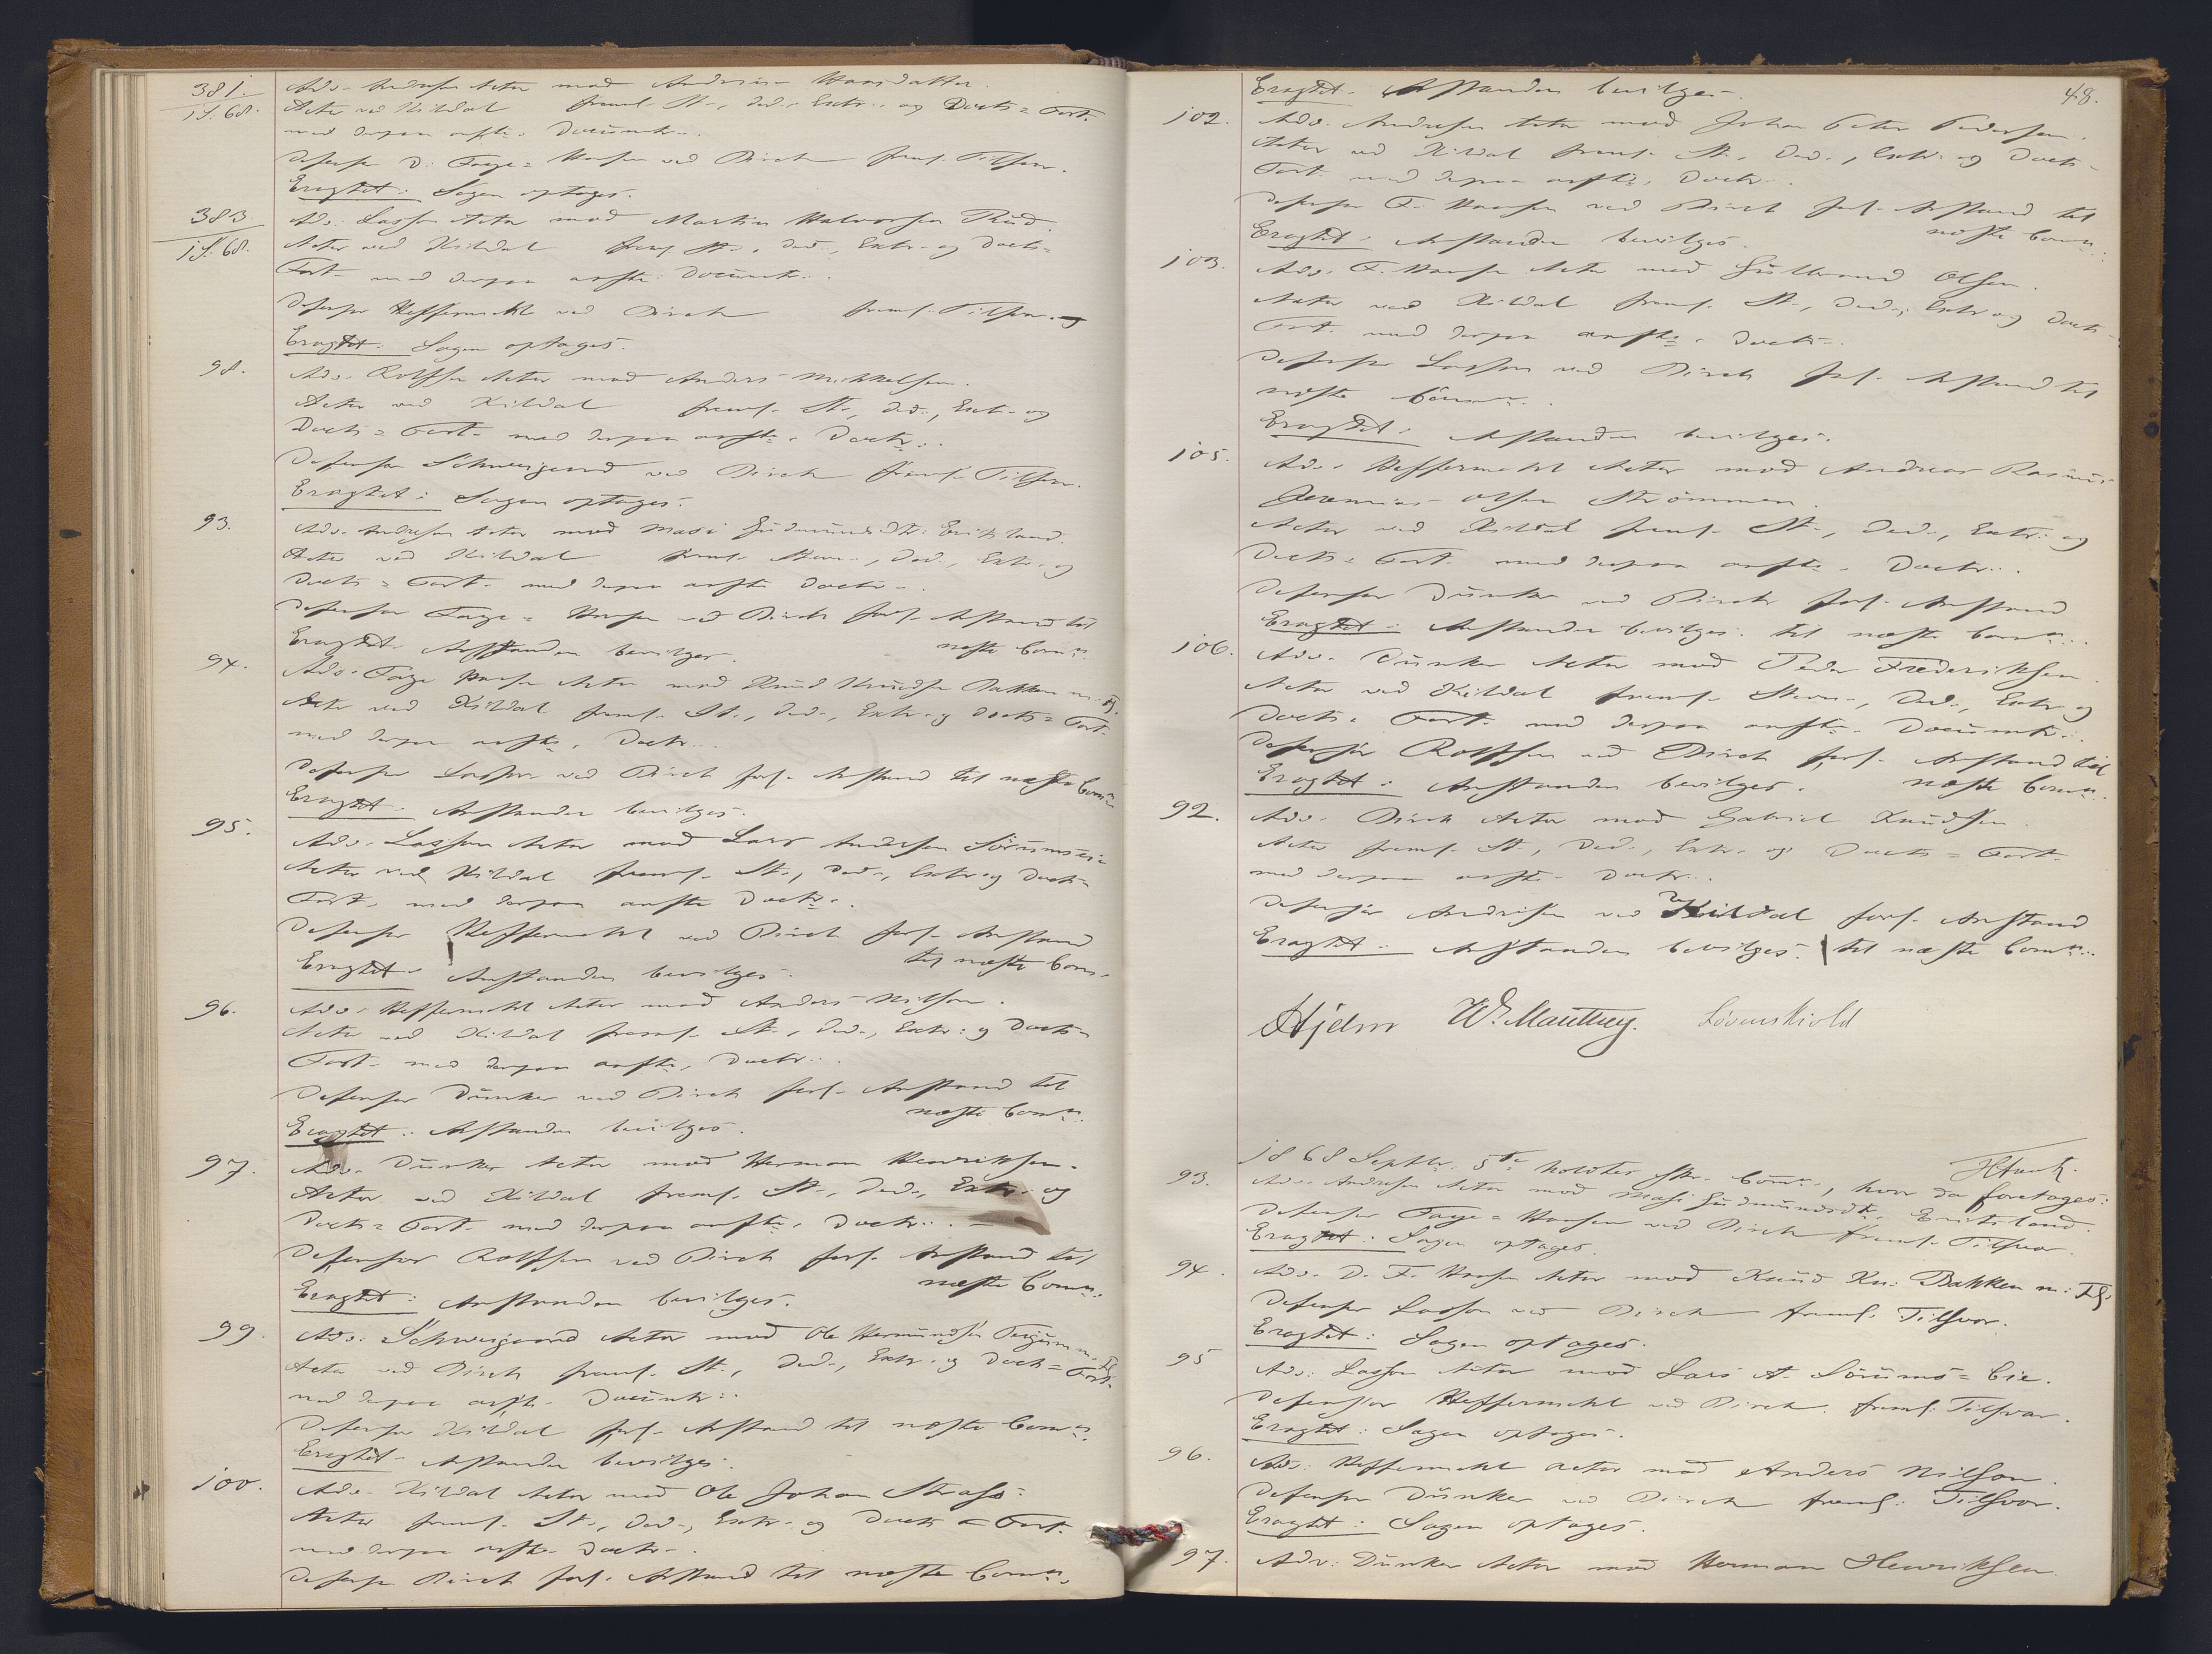 381.
1S. 68.
Adv. Andresen Actor mod Andrine Hansdatter.
Actor ved Kildal freml. St., Ded., Extr. og Docts = Fort.
med derpaa anfte. Documtr.
Defensor D. Faye = Hansen ved Birch freml. Tilsvar.
Eragtet: Sagen optages.
383.
1S. 68.
Adv. Lasson Actor mod Martin Halvorsen Rud.
Actor ved Kildal freml. St., Ded., Extr. og Docts =
Fort. med derpaa anfte. Documtr.
Defensor Heffermehl ved Birch freml. Tilsvar.
Eragtet: Sagen optages.
98.
Adv. Rolfsen Actor mod Anders Mikkelsen.
Actor ved Kildal freml. St., Ded., Extr. og
Docts = Fort. med derpaa anfte. Doctr.
Defensor Schweigaard ved Birch freml. Tilsvar.
Eragtet: Sagen optages.
93.
Adv. Andresen Actor mod Masi Gudmundsdtr.
Actor ved Kildal freml. Stevn., Ded., Extr. og
Docts = Fort. med derpaa anfte Doctr.
Defensor Faye = Hansen ved Birch forl. Anstand til
næste Comn.
Eragtet. Anstanden bevilges.
94.
Adv. Faye Hansen Actor mod Knud Knudsen Bakken m. Fl.
Actor ved Kildal freml. St., Ded., Extr. og Docts = Fort.
med derpaa anfte. Doctr.
Defensor Lasson ved Birch forl. Anstand til næste Comn
Eragtet. Anstanden bevilges.
95.
Adv. Lasson Actor mod Lars Andersen Sörumseie
Actor ved Kildal freml. St., Ded., Extr. og Docts =
Fort. med derpaa anfte Doctr.
Defensor Heffermehl ved Birch forl. Anstand
til næste Comn.
Eragtet. Anstanden bevilges.
96.
Adv. Heffermehl Actor mod Anders Nilsson.
Actor ved Kildal freml. St., Ded., Extr: og Docts =
Fort. med derpaa anfte, Doctr.
Defensor Dunker ved Birch forl. Anstand til
næste Comn.
Eragtet: Anstanden bevilges.
97.
Adv. Dunker Actor mod Herman Henriksen.
Actor ved Kildal freml. St., Ded., Extr. og
Docts = Fort. med derpaa anfte. Doctr.
Defensor Rolfsen ved Birch forl. Anstand til
næste Comn.
Eragtet: Anstanden bevilges.
99.
Adv. Schweigaard Actor mod Ole m. Fl.
Actor ved Birch freml. St., Ded., Extr. og Docts = Fort.
med derpaa anfte. Documtr.
Defensor Kildal forl. Anstand til næste Comn.
Eragtet. Anstanden bevilges.
100.
Adv. Kildal Actor mod Ole Johan
Actor freml. St., Ded., Extr. og Docts = Fort.
med derpaa anfte. Doctr.
Defensor Birch forl. Anstand til næste Comn.
48.
Eragtet. Anstanden bevilges.
102.
Adv. Andresen Actor mod Johan Peter Pedersen.
Actor ved Kildal freml. St., Ded., Extr. og Docts =
Fort. med derpaa anfte, Doctr.
Defensor F. Hansen ved Birch forl. Anstand til
næste Comn.
Eragtet: Anstanden bevilges.
103.
Adv. F. Hansen Actor mod Gulbrand Olsen.
Actor ved Kildal freml. St., Ded., Extr og Docts =
Fort. med derpaa anfte. Doctr.
Defensor Lasson ved Birch forl. Anstand til
næste Comn.
Eragtet: Anstanden bevilges.
105.
Adv. Heffermehl Actor mod Andreas Rasmus
Jeremias Olsen Strömmen.
Actor ved Kildal freml. St., Ded., Extr: og
Docts = Fort. med derpaa anfte. Doctr.
Defensor Dunker ved Birch forl. Anstand
Eragtet: Anstanden bevilges. til næste Comn.
106.
Adv. Dunker Actor mod Peder Frederiksen.
Actor ved Kildal freml. Stevn., Ded., Extr. og
Docts = Fort. med derpaa anfte. Documtr.
Defensor Rolfsen ved Birch forl. Anstand til
næste Comn.
Eragtet: Anstanden bevilges.
92.
Adv. Birch Actor mod Gabriel Knudsen
Actor freml. St., Ded., Extr. og Docts = Fort.
med derpaa anfte. Doctr.
Defensor Andresen ved Kildal forl. Anstand
Eragtet: Anstanden bevilges. til næste Comn.
Hjelm W. Manthey. Løvenskiold
1868 Septbr. 5te holdtes Comn., hvor da foretoges:
93.
Adv. Andresen Actor mod Masi Gudmundsdtr.
Defensor Faye = Hansen ved Birch freml. Tilsvar.
Eragtet: Sagen optages.
94.
Adv. D. F. Hansen Actor mod Knud Kn. Bakken m: Fl.
Defensor Lasson ved Birch freml. Tilsvar.
Eragtet: Sagen optages.
95
Adv. Lasson Actor mod Lars A. Sörums = Eie.
Defensor Heffermehl ved Birch. freml: Tilsvar.
Eragtet: Sagen optages.
96.
Adv: Heffermehl Actor mod Anders Nilsson.
Defensor Dunker ved Birch freml: Tilsvar.
Eragtet: Sagen optages.
97.
Adv. Dunker Actor mod Herman Henriksen